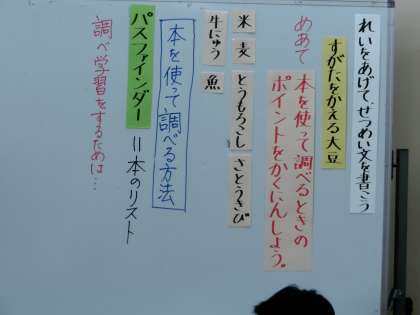 れいをあげて、せつめい文を書こう
すがたをかえる大豆
めあて 本を使って調べるときの
ポイントをかくにんしよう。
米 麦 とうもろこし さとうきび
牛にゅう 魚
本を使って調べる方法
パスファインダー=本のリスト
調べ学習をするためは…